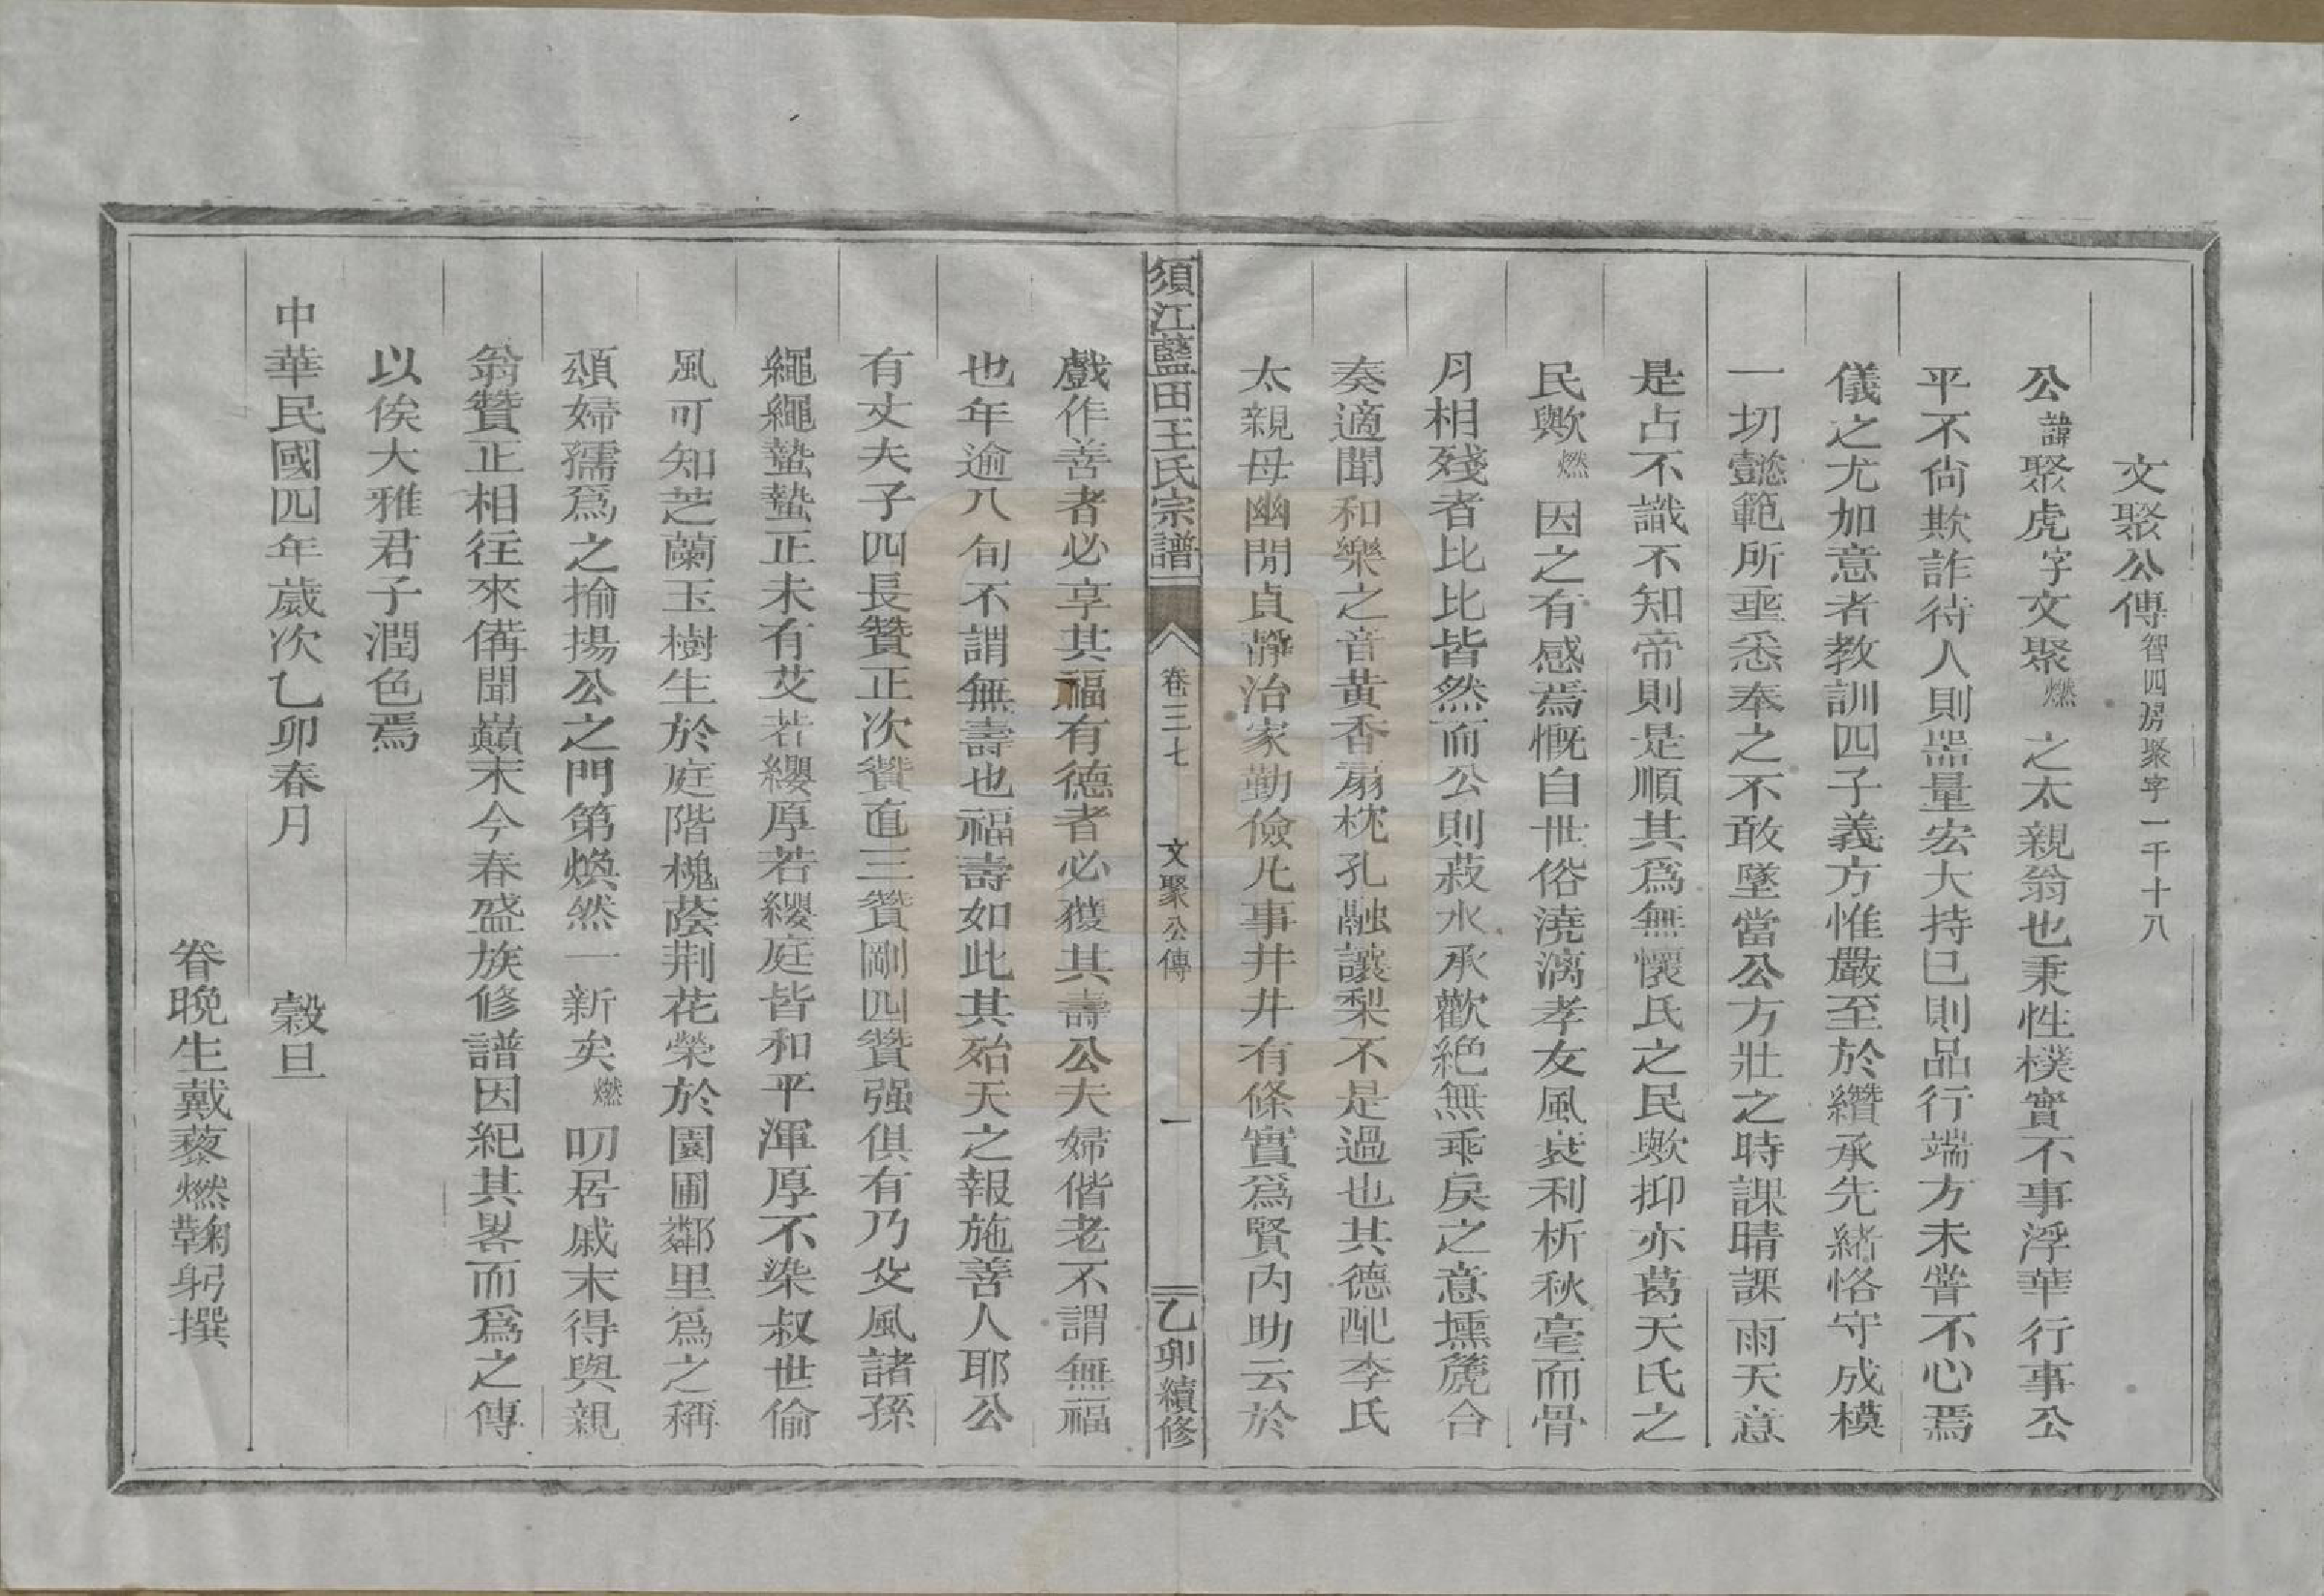 文聚公傳智四房聚字一千十八
公諱聚虎字文聚燃之太親翁也秉性樸實不事浮華行事公
平不尙欺詐待人則噐量宏大持已則品行端方未甞不心焉
儀之尤加意者教訓四子義方惟嚴至於纘承先緒恪守成模
一切懿範所垂悉奉之不敢墜當公方壯之時課晴課雨天意
是占不識不知帝則是順其爲無懷氏之民歟抑亦葛天氏之
民歟燃因之有感焉慨自世俗澆漓孝友風衰利析秋毫而骨
月相殘者比比皆然而公則菽水承歡絶無乖戾之意壎篪合
奏適聞和樂之音黃香扇枕孔融讓梨不是過也其德配李氏
太親母幽閒貞靜治家勤儉凡事井井有條實爲賢内助云於
須江藍田王氏宗譜
卷三七
文聚公傳
一
乙卯續修
戲作善者必享其福有德者必獲其壽公夫婦偕老不謂無福
也年逾八旬不謂無壽也福壽如此其殆天之報施善人耶公
有丈夫子四長贊正次贊直三贊剛四贊强俱有乃父風諸孫
繩繩蟄蟄正未有艾若纓厚若纓庭皆和平渾厚不染叔世偷
風可知芝蘭玉樹生於庭階槐蔭荆花榮於園圃鄰里爲之稱
頌婦孺爲之揄揚公之門第煥然一新矣燃叨居戚末得與親
翁贊正相往來備聞巔末今春盛族修譜因紀其畧而爲之傳
以俟大雅君子潤色焉
中華民國四年歲次乙卯春月 穀旦
眷晚生戴藜燃鞠躬撰